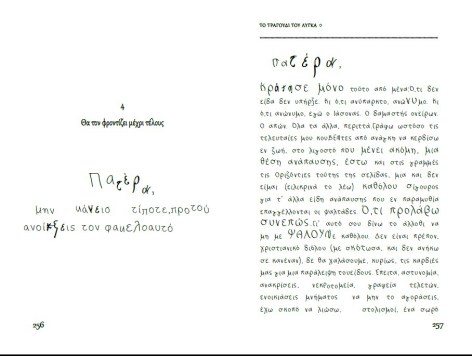 4
Θα τον φροντίζει μέχρι τέλους
Πατέρα,
μην κάνεις τίποτε, προτού
ανοίξεις τον φακελο αυτό
256
ΤΟ ΤΡΑΓΟΥΔΙ ΤΟΥ ΛΥΓΚΑ
πατέρα,
Κράτησε μόνο τούτο από μένα: Ό,τι δεν
είδα δεν υπήρξε. Κι ό,τι ανύπαρκτο, ανώνυμο. Κι
ό,τι ανώνυμο, εγώ ο Ιάσονας. Ο δαμαστής ονείρων.
Ο απών. Όλα τα άλλα, περιττά. Γράφω ωστόσο τις
τελευταίες μου κουβέντες από ανάγκη να κερδίσω
εν ζωή, στο λιγοστό που μένει ακόμη, μια
θέση ανάπαυσης, έστω και στις γραμμές
τις οριζόντιες τούτης της σελίδας, μια και δεν
είμαι (ειλικρινά το λέω) καθόλου σίγουρος
για τ' άλλα είδη ανάπαυσης που εν παραμυθία
επαγγέλλονται οι ψαλτάδες. Ό,τι προλάβω
συνεπώς. Γι' αυτό σου δίνω το άλλοθι να
μη με ΨΑΛΟΥΝ καθόλου. Δεν είναι πρέπον,
χριστιανικό διόλου (με σκότωσα, και δεν ανήκω
σε κανέναν), δε θα χαλάσουμε, κυρίως, τις καρδιές
μας για μια παράλειψη τους είδους. Έπειτα, αστυνομία,
ανακρίσεις, νεκροτομεία, γραφεία τελετών,
ενοικιάσεις μνήματος να μην το αγοράσεις,
έχω σκοπό να λιώσω, στολισμοί, ένα σωρό
257